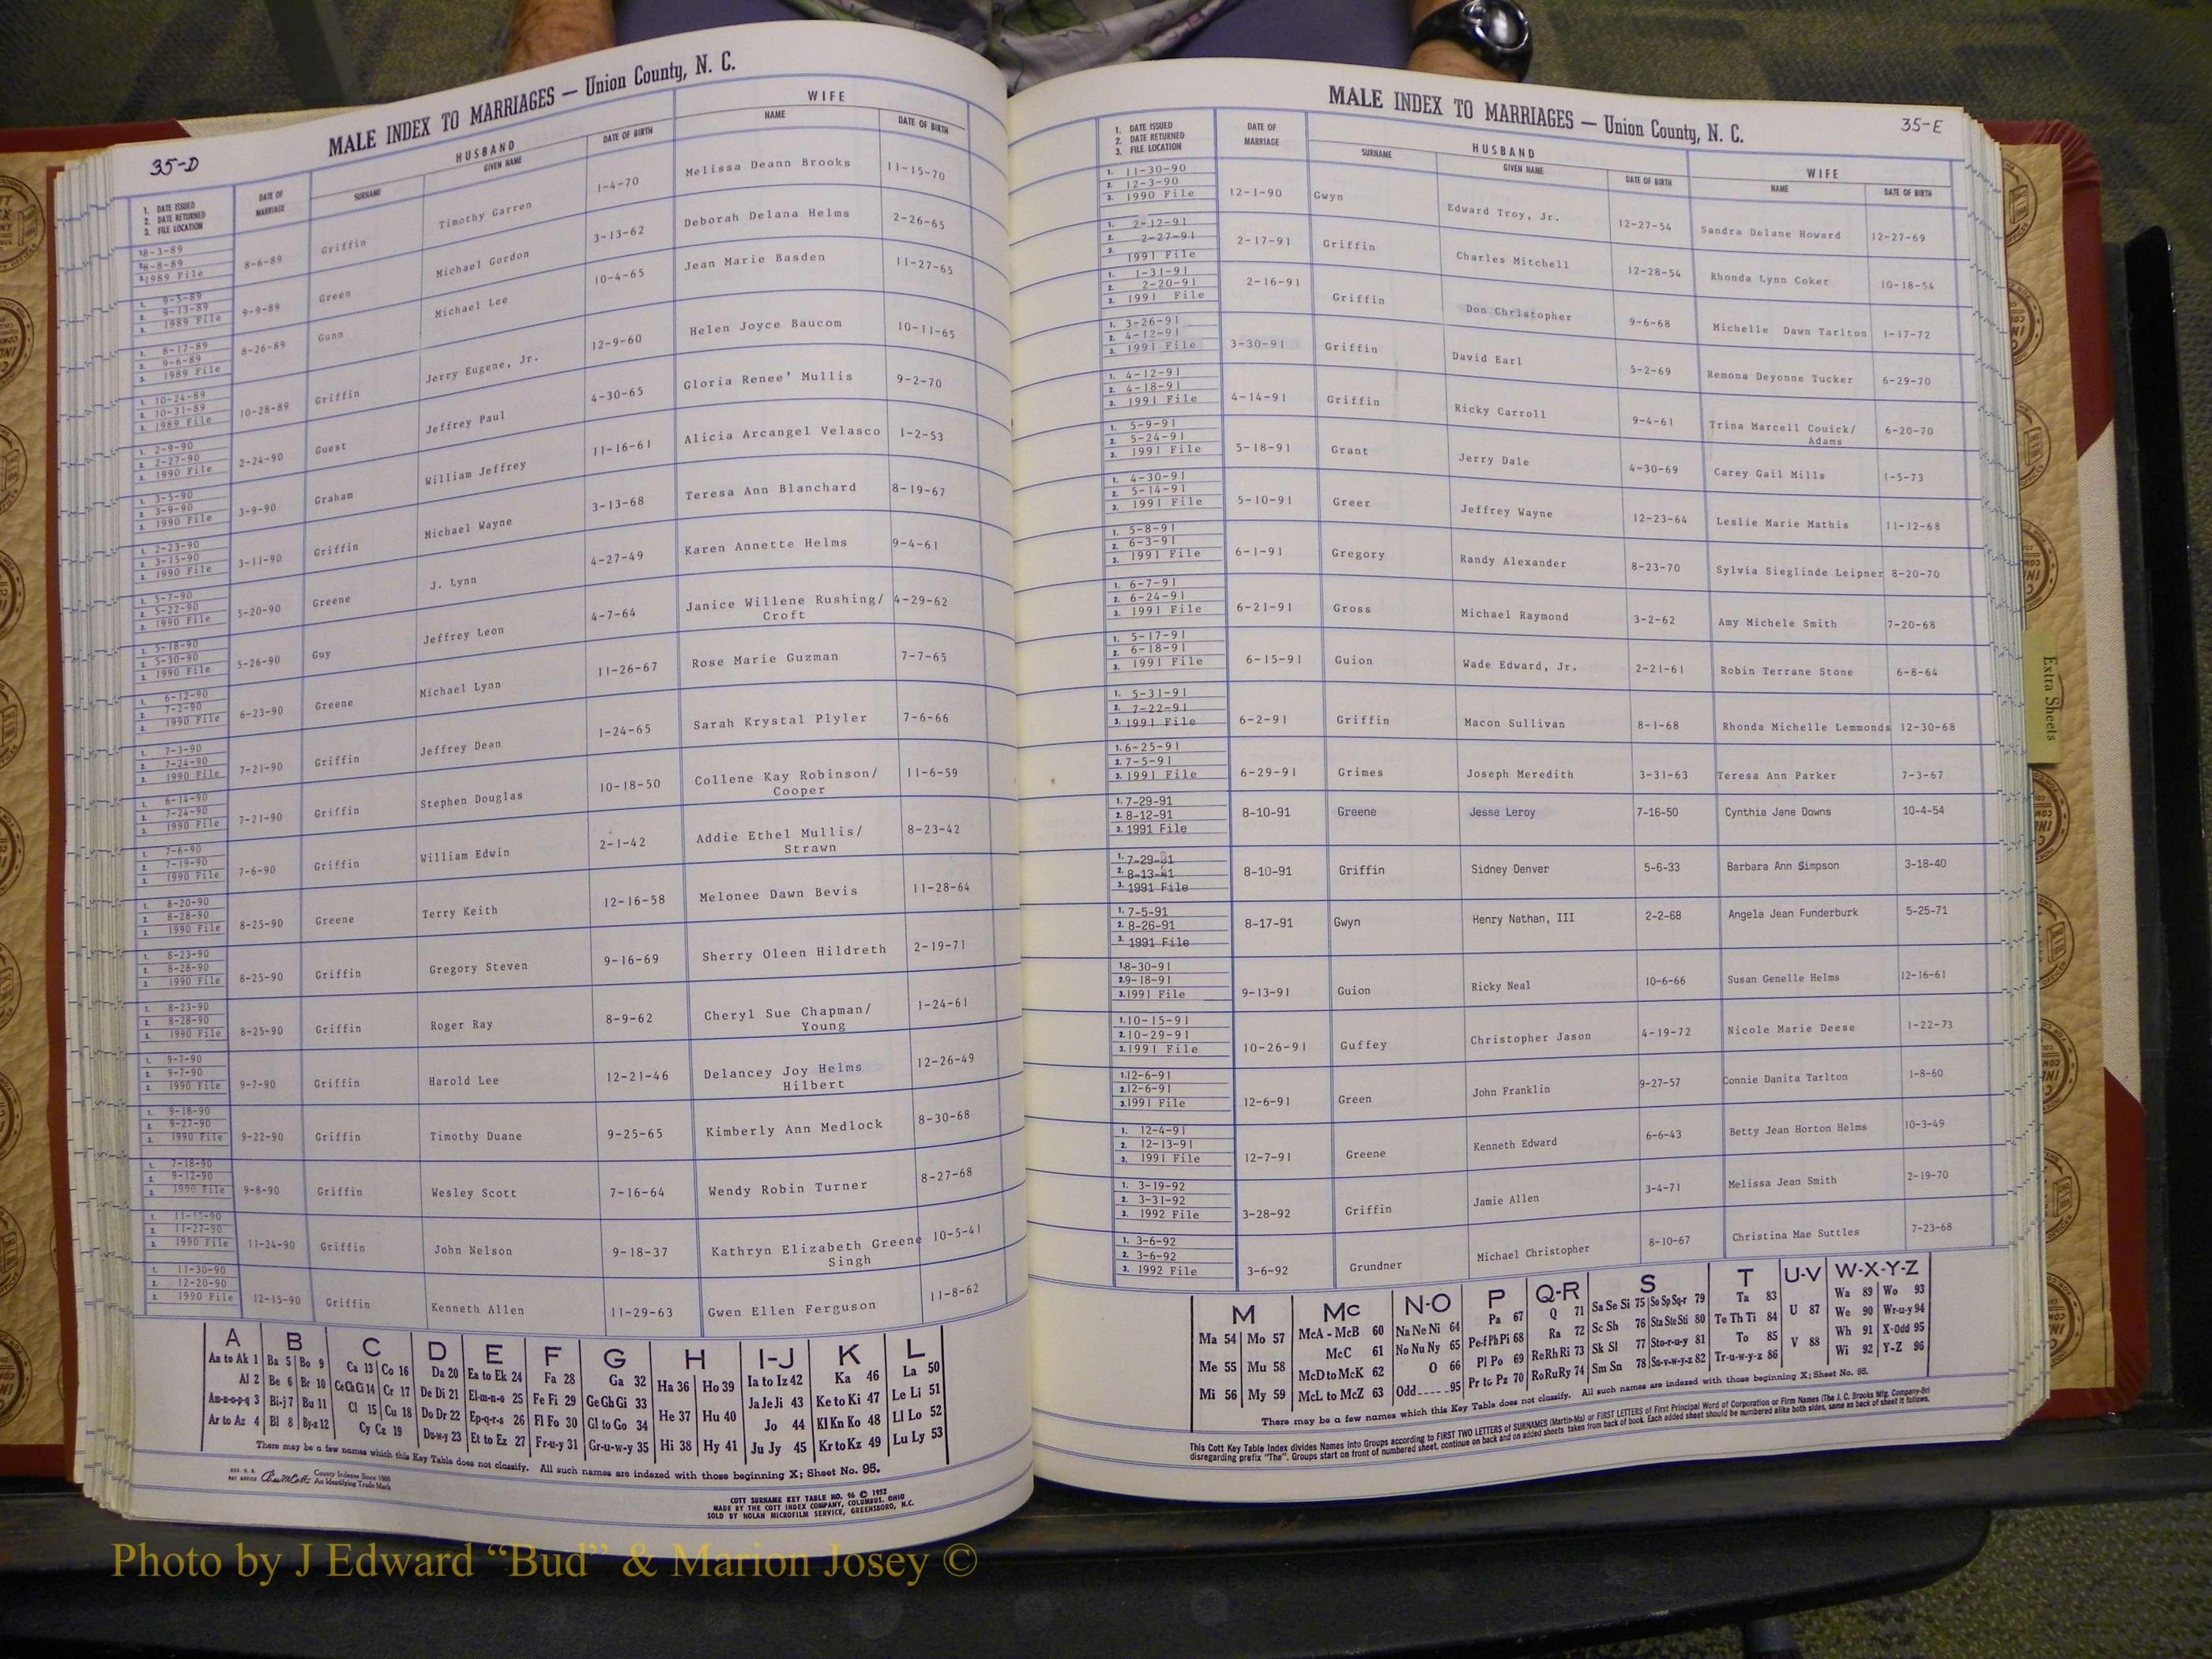 35-D
MALE INDEX TO MARRIAGES — Union County, N. C.
1. DATE ISSUED
2. DATE RETURNED
3. FILE LOCATION
DATE OF MARRIAGE
HUSBAND
SURNAME GIVEN NAME DATE OF BIRTH
WIFE
NAME DATE OF BIRTH
1. 8-3-89
2. 8-8-89
3. 1989 File
8-6-89 Griffin Timothy Garren 1-4-70 Melissa Deann Brooks 11-15-70
1. 9-5-89
2. 9-13-89
3. 1989 File
9-9-89 Green Michael Gordon 3-13-62 Deborah Delana Helms 2-26-65
1. 8-17-89
2. 9-6-89
3. 1989 File
8-26-89 Gunn Michael Lee 10-4-65 Jean Marie Basden 11-27-65
1. 10-24-89
2. 10-31-89
3. 1989 File
10-28-89 Griffin Jerry Eugene, Jr. 12-9-60 Helen Joyce Baucom 10-11-65
1. 2-9-90
2. 2-27-90
3. 1990 File
2-24-90 Guest Jeffrey Paul 4-30-65 Gloria Renee' Mullis 9-2-70
1. 3-5-90
2. 3-9-90
3. 1990 File
3-9-90 Graham William Jeffrey 11-16-61 Alicia Arcangel Velasco 1-2-53
1. 2-23-90
2. 3-15-90
3. 1990 File
3-11-90 Griffin Michael Wayne 3-13-68 Teresa Ann Blanchard 8-19-67
1. 5-7-90
2. 5-22-90
3. 1990 File
5-20-90 Greene J. Lynn 4-27-49 Karen Annette Helms 9-4-61
1. 5-18-90
2. 5-30-90
3. 1990 File
5-26-90 Guy Jeffrey Leon 4-7-64 Janice Willene Rushing/ 4-29-62
Croft
1. 6-12-90
2. 7-2-90
3. 1990 File
6-23-90 Greene Michael Lynn 11-26-67 Rose Marie Guzman 7-7-65
1. 7-3-90
2. 7-24-90
3. 1990 File
7-21-90 Griffin Jeffrey Dean 1-24-65 Sarah Krystal Plyler 7-6-66
1. 6-14-90
2. 7-24-90
3. 1990 File
7-21-90 Griffin Stephen Douglas 10-18-50 Collene Kay Robinson/ 11-6-59
Cooper
1. 7-6-90
2. 7-19-90
3. 1990 File
7-6-90 Griffin William Edwin 2-1-42 Addie Ethel Mullis/ 8-23-42
Strawn
1. 8-20-90
2. 8-28-90
3. 1990 File
8-25-90 Greene Terry Keith 12-16-58 Melonee Dawn Bevis 11-28-64
1. 8-23-90
2. 8-28-90
3. 1990 File
8-25-90 Griffin Gregory Steven 9-16-69 Sherry Oleen Hildreth 2-19-71
1. 8-23-90
2. 8-28-90
3. 1990 File
8-25-90 Griffin Roger Ray 8-9-62 Cheryl Sue Chapman/ 1-24-61
Young
1. 9-7-90
2. 9-7-90
3. 1990 File
9-7-90 Griffin Harold Lee 12-21-46 Delancey Joy Helms 12-26-49
Hilbert
1. 9-18-90
2. 9-27-90
3. 1990 File
9-22-90 Griffin Timothy Duane 9-25-65 Kimberly Ann Medlock 8-30-68
1. 7-18-90
2. 9-12-90
3. 1990 File
9-8-90 Griffin Wesley Scott 7-16-64 Wendy Robin Turner 8-27-68
2. 11-27-90
3. 1990 File
11-24-90 Griffin John Nelson 9-18-37 Kathryn Elizabeth Greene 10-5-41
Singh
1. 11-30-90
2. 12-20-90
3. 1990 File
12-15-90 Griffin Kenneth Allen 11-29-63 Gwen Ellen Ferguson 11-8-62
A B C D E F G H I-J K L
Aa to Ak 1 Ba 5 Bo 9 Ca 13 Co 16 Da 20 Ea to Ek 24 Fa 28 Ga 32 Ha 36 Ho 39 Ia to Iz 42 Ka 46 La 50
Al 2 Be 6 Br 10 Ce Ch Ci 14 Cr 17 De Di 21 El-m-n-o 25 Fe Fi 29 Ge Gh Gi 33 He 37 Hu 40 Ja Je Ji 43 Ke to Ki 47 Le Li 51
Am-n-o-p-q 3 Bi-j 7 Bu 11 Cl 15 Cu 18 Do Dr 22 Ep-q-r-s 26 Fl Fo 30 Gl to Go 34 Jo 44 Kl Kn Ko 48 Ll Lo 52
Ar to Az 4 Bl 8 By-z 12 Cy Cz 19 Du-w-y 23 Et to Ez 27 Fr-u-y 31 Gr-u-w-y 35 Hi 38 Hy 41 Ju Jy 45 Kr to Kz 49 Lu Ly 53
There may be a few names which this Key Table does not classify. All such names are indexed with those beginning X; Sheet No. 95.
REG. U. S. PAT. OFFICE
County Indexes Since 1888
An Identifying Trade Mark
COTT SURNAME KEY TABLE NO. 96 © 1952
MADE BY THE COTT INDEX COMPANY, COLUMBUS, OHIO
SOLD BY NOLAN MICROFILM SERVICE, GREENSBORO, N.C.
35-E
MALE INDEX TO MARRIAGES — Union County, N. C.
1. DATE ISSUED
2. DATE RETURNED
3. FILE LOCATION
DATE OF MARRIAGE
HUSBAND
SURNAME GIVEN NAME DATE OF BIRTH
WIFE
NAME DATE OF BIRTH
1. 11-30-90
2. 12-3-90
3. 1990 File
12-1-90 Gwyn Edward Troy, Jr. 12-27-54 Sandra Delane Howard 12-27-69
1. 2-12-91
2. 2-27-91
3. 1991 File
2-17-91 Griffin Charles Mitchell 12-28-54 Rhonda Lynn Coker 10-18-54
1. 1-31-91
2. 2-20-91
3. 1991 File
2-16-91 Griffin Don Christopher 9-6-68 Michelle Dawn Tarlton 1-17-72
1. 3-26-91
2. 4-12-91
3. 1991 File
3-30-91 Griffin David Earl 5-2-69 Remona Deyonne Tucker 6-29-70
1. 4-12-91
2. 4-18-91
3. 1991 File
4-14-91 Griffin Ricky Carroll 9-4-61 Trina Marcell Couick/ 6-20-70
Adams
1. 5-9-91
2. 5-24-91
3. 1991 File
5-18-91 Grant Jerry Dale 4-30-69 Carey Gail Mills 1-5-73
1. 4-30-91
2. 5-14-91
3. 1991 File
5-10-91 Greer Jeffrey Wayne 12-23-64 Leslie Marie Mathis 11-12-68
1. 5-8-91
2. 6-3-91
3. 1991 File
6-1-91 Gregory Randy Alexander 8-23-70 Sylvia Sieglinde Leipner 8-20-70
1. 6-7-91
2. 6-24-91
3. 1991 File
6-21-91 Gross Michael Raymond 3-2-62 Amy Michele Smith 7-20-68
1. 5-17-91
2. 6-18-91
3. 1991 File
6-15-91 Guion Wade Edward, Jr. 2-21-61 Robin Terrane Stone 6-8-64
1. 5-31-91
2. 7-22-91
3. 1991 File
6-2-91 Griffin Macon Sullivan 8-1-68 Rhonda Michelle Lemmonds 12-30-68
1. 6-25-91
2. 7-5-91
3. 1991 File
6-29-91 Grimes Joseph Meredith 3-31-63 Teresa Ann Parker 7-3-67
1. 7-29-91
2. 8-12-91
3. 1991 File
8-10-91 Greene Jesse Leroy 7-16-50 Cynthia Jane Downs 10-4-54
1. 7-29-91
2. 8-13-91
3. 1991 File
8-10-91 Griffin Sidney Denver 5-6-33 Barbara Ann Simpson 3-18-40
1. 7-5-91
2. 8-26-91
3. 1991 File
8-17-91 Gwyn Henry Nathan, III 2-2-68 Angela Jean Funderburk 5-25-71
1. 8-30-91
2. 9-18-91
3. 1991 File
9-13-91 Guion Ricky Neal 10-6-66 Susan Genelle Helms 12-16-61
1. 10-15-91
2. 10-29-91
3. 1991 File
10-26-91 Guffey Christopher Jason 4-19-72 Nicole Marie Deese 1-22-73
1. 12-6-91
2. 12-6-91
3. 1991 File
12-6-91 Green John Franklin 9-27-57 Connie Danita Tarlton 1-8-60
1. 12-4-91
2. 12-13-91
3. 1991 File
12-7-91 Greene Kenneth Edward 6-6-43 Betty Jean Horton Helms 10-3-49
1. 3-19-92
2. 3-31-92
3. 1992 File
3-28-92 Griffin Jamie Allen 3-4-71 Melissa Jean Smith 2-19-70
1. 3-6-92
2. 3-6-92
3. 1992 File
3-6-92 Grundner Michael Christopher 8-10-67 Christina Mae Suttles 7-23-68
M Mc N-O P Q-R S T U-V W-X-Y-Z
Ma 54 Mo 57 McA - McB 60 Na Ne Ni 64 Pa 67 Q 71 Sa Se Si 75 So Sp Sq-r 79 Ta 83 U 87 Wa 89 Wo 93
Me 55 Mu 58 McC 61 No Nu Ny 65 Pe-f Ph Pi 68 Ra 72 Sc Sh 76 Sta Ste Sti 80 Te Th Ti 84 We 90 Wr-u-y 94
McD to McK 62 O 66 Pl Po 69 Re Rh Ri 73 Sk Sl 77 Sto-r-u-y 81 To 85 V 88 Wh 91 X-Odd 95
Mi 56 My 59 McL to McZ 63 Odd 95 Pr to Pz 70 Ro Ru Ry 74 Sm Sn 78 Su-v-w-y-z 82 Tr-u-w-y-z 86 Wi 92 Y-Z 96
There may be a few names which this Key Table does not classify. All such names are indexed with those beginning X; Sheet No. 95.
This Cott Key Table Index divides Names into Groups according to FIRST TWO LETTERS of SURNAMES (Martin-Ma) or FIRST LETTERS of First Principal Word of Corporation or Firm Names (The J. C. Brooks Mfg. Company-Br)
disregarding prefix "The". Groups start on front of numbered sheet, continue on back and on added sheets taken from back of book. Each added sheet should be numbered alike both sides, same as back of sheet it follows.
Extra Sheets
Photo by J Edward “Bud” & Marion Josey ©